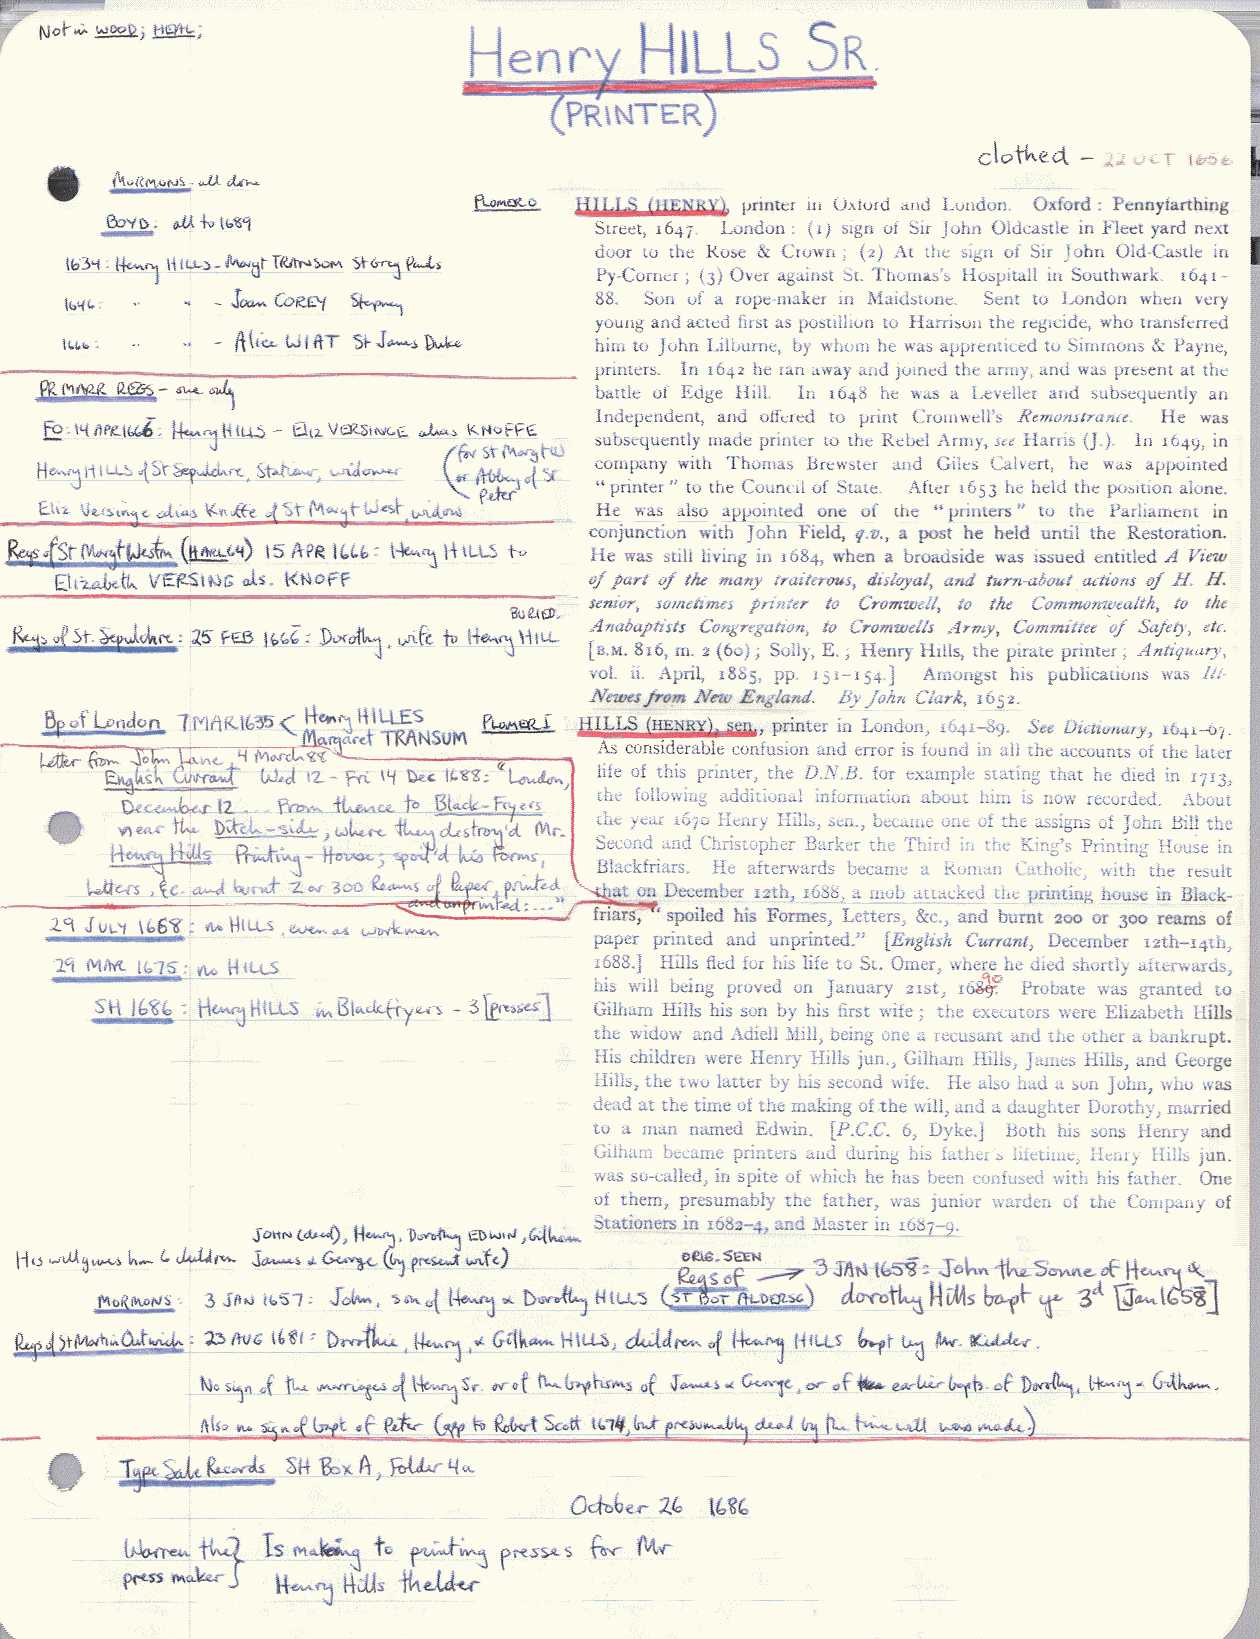 Not in WOOD; HEAL;
Henry HILLS SR.
(PRINTER)
clothed - 22 OCT 1656
MORMONS - all done
BOYD: all to 1689
1634: Henry HILLS - Margt TRANSOM St Greg Pauls
1646: " " - Joan COREY Stepney
1666: " " - Alice WIAT St James Duke
PR MARR REGS - one only
FO: 14 APR 1666: Henry HILLS - Eliz VERSINGE alias KNOFFE
(for St Margt W
or Abbey of St
Peter
Henry HILLS of St Sepulchre, Stationer, widower
Eliz Versinge alias Knoffe of St Margt West, widow
Regs of St Margt Westm (HARL 64) 15 APR 1666: Henry HILLS to
Elizabeth VERSING als. KNOFF
BURIED.
Regs of St. Sepulchre: 25 FEB 1666: Dorothy, wife to Henry HILL
Bp of London 7 MAR 1635 < Henry HILLES
Margaret TRANSUM
Letter from John Lane, 4 March 88
English Currant Wed 12 - Fri 14 Dec 1688: "London,
December 12 .... From thence to Black-Fryers
near the Ditch-side, where they destroy'd Mr.
Henry Hills Printing-House; spoil'd his Forms,
Letters, &c. and burnt 2 or 300 Reams of Paper, printed
and unprinted:..."
29 JULY 1668: no HILLS, even as workmen
29 MAR 1675: no HILLS
SH 1686: Henry HILLS in Blackfryers - 3 [presses]
PLOMER 0
HILLS (HENRY), printer in Oxford and London. Oxford: Pennyfarthing
Street, 1647. London: (1) sign of Sir John Oldcastle in Fleet yard next
door to the Rose & Crown; (2) At the sign of Sir John Old-Castle in
Py-Corner; (3) Over against St. Thomas's Hospitall in Southwark. 1641-
88. Son of a rope-maker in Maidstone. Sent to London when very
young and acted first as postillion to Harrison the regicide, who transferred
him to John Lilburne, by whom he was apprenticed to Simmons & Payne,
printers. In 1642 he ran away and joined the army, and was present at the
battle of Edge Hill. In 1648 he was a Leveller and subsequently an
Independent, and offered to print Cromwell's Remonstrance. He was
subsequently made printer to the Rebel Army, see Harris (J.). In 1649, in
company with Thomas Brewster and Giles Calvert, he was appointed
"printer" to the Council of State. After 1653 he held the position alone.
He was also appointed one of the "printers" to the Parliament in
conjunction with John Field, q.v., a post he held until the Restoration.
He was still living in 1684, when a broadside was issued entitled A View
of part of the many traiterous, disloyal, and turn-about actions of H. H.
senior, sometimes printer to Cromwell, to the Commonwealth, to the
Anabaptists Congregation, to Cromwells Army, Committee of Safety, etc.
[B.M. 816, m. 2 (60); Solly, E.; Henry Hills, the pirate printer; Antiquary,
vol. ii. April, 1885, pp. 151-154.] Amongst his publications was Ill-
Newes from New England. By John Clark, 1652.
PLOMER I
HILLS (HENRY), sen., printer in London, 1641-89. See Dictionary, 1641-67.
As considerable confusion and error is found in all the accounts of the later
life of this printer, the D.N.B. for example stating that he died in 1713,
the following additional information about him is now recorded. About
the year 1670 Henry Hills, sen., became one of the assigns of John Bill the
Second and Christopher Barker the Third in the King's Printing House in
Blackfriars. He afterwards became a Roman Catholic, with the result
that on December 12th, 1688, a mob attacked the printing house in Black-
friars, "spoiled his Formes, Letters, &c., and burnt 200 or 300 reams of
paper printed and unprinted." [English Currant, December 12th-14th,
1688.] Hills fled for his life to St. Omer, where he died shortly afterwards,
90
his will being proved on January 21st, 1689. Probate was granted to
Gilham Hills his son by his first wife; the executors were Elizabeth Hills
the widow and Adiell Mill, being one a recusant and the other a bankrupt.
His children were Henry Hills jun., Gilham Hills, James Hills, and George
Hills, the two latter by his second wife. He also had a son John, who was
dead at the time of the making of the will, and a daughter Dorothy, married
to a man named Edwin. [P.C.C. 6, Dyke.] Both his sons Henry and
Gilham became printers and during his father's lifetime, Henry Hills jun.
was so-called, in spite of which he has been confused with his father. One
of them, presumably the father, was junior warden of the Company of
Stationers in 1682-4, and Master in 1687-9.
JOHN (dead), Henry, Dorothy EDWIN, Gilham
His will gives him 6 children James & George (by present wife)
ORIG. SEEN
Regs of → 3 JAN 1658: John the Sonne of Henry &
MORMONS: 3 JAN 1657: John, son of Henry & Dorothy HILLS (ST BOT ALDERSG) dorothy Hills bapt ye 3d [Jan 1658]
Regs of St Martin Outwich: 23 AUG 1681: Dorothie, Henry, & Gilham HILLS, children of Henry HILLS bapt by Mr. Kidder.
No sign of the marriages of Henry Sr. or of the baptisms of James & George, or of earlier bapts. of Dorothy, Henry & Gilham.
Also no sign of bapt of Peter (app to Robert Scott 1674, but presumably dead by the time will was made)
Type Sale Records SH Box A, Folder 4a
October 26 1686
Warren the } Is making to printing presses for Mr
press maker } Henry Hills thelder